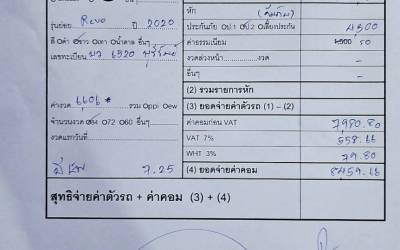 หัก (คันเก่า)
รุ่นย่อย Revo ปี 2020
ประกันภัย ○ป1 ○ป2 ○เบี้ยประกัน 4,500
สี ○ดำ ○ขาว ○เทา ○น้ำตาล อื่นๆ
ค่าธรรมเนียม 50
เลขทะเบียน 6520 บุรีรัมย์
งวดล่วงหน้า งวด -
อื่นๆ
(2) รวมรายการหัก
ค่างวด 6,606 * รวม Oppi Oew
(3) ยอดจ่ายค่าตัวรถ (1) – (2)
จำนวนงวด ○84 ○72 ○60 อื่นๆ
ค่าคอมก่อน VAT 7,980.80
งวดแรกวันที่
VAT 7% 558.66
WHT 3% 79.80
7.25
(4) ยอดจ่ายค่าคอม 8459.66
สุทธิจ่ายค่าตัวรถ + ค่าคอม (3) + (4)